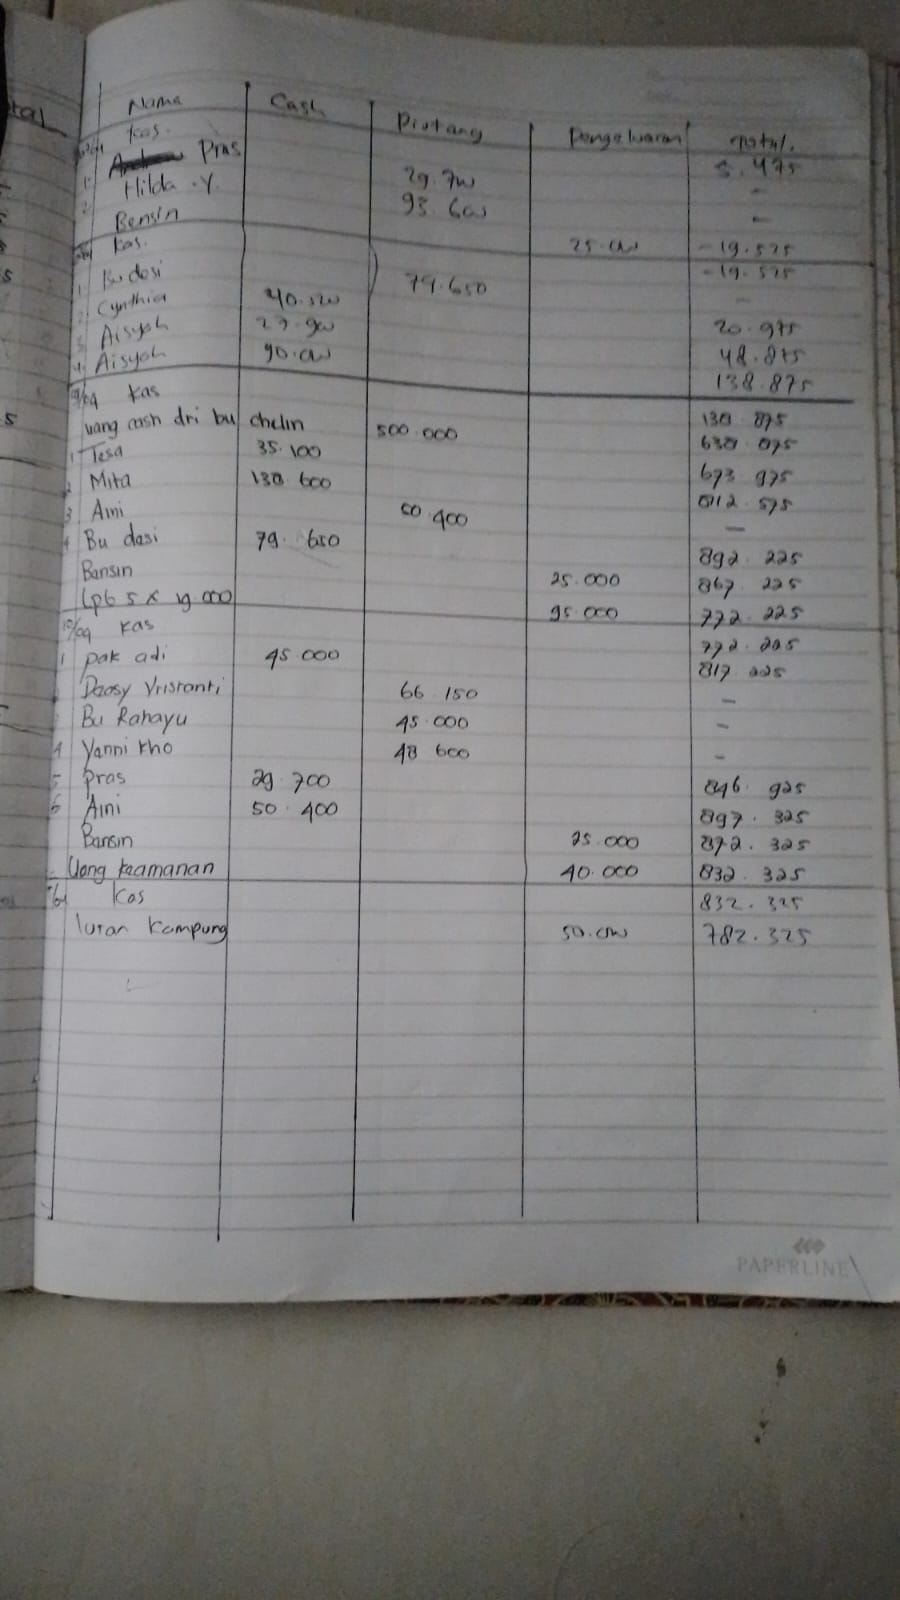 tal
Nama Cash Piutang Pengeluaran Total.
Kas. 5.475
1. Pras 29.700 -
2. Hilda .Y. 93.600 -
Bensin 25.000 -19.525
Kas. -19.525
1. Bu desi 79.650 -
2. Cynthia 40.500 20.975
3. Aisyah 27.900 48.875
4. Aisyah 90.000 138.875
9/09 Kas 138.875
uang cash dri bu chelin 500.000 638.875
1 Tesa 35.100 673.975
2 Mita 138.600 812.575
3 Aini 50.400 -
4 Bu desi 79.650 892.225
Bansin 25.000 867.225
Lpb 5 x 19.000 95.000 772.225
10/09 Kas 772.225
1 pak adi 45.000 817.225
Daosy Vristanti 66.150 -
Bu Rahayu 45.000 -
4 Yanni kho 48.600 -
5 pras 29.700 846.925
6 Aini 50.400 897.325
Bansin 25.000 872.325
Uang keamanan 40.000 832.325
Kas 832.325
Iuran Kampung 50.000 782.325
PAPERLINE